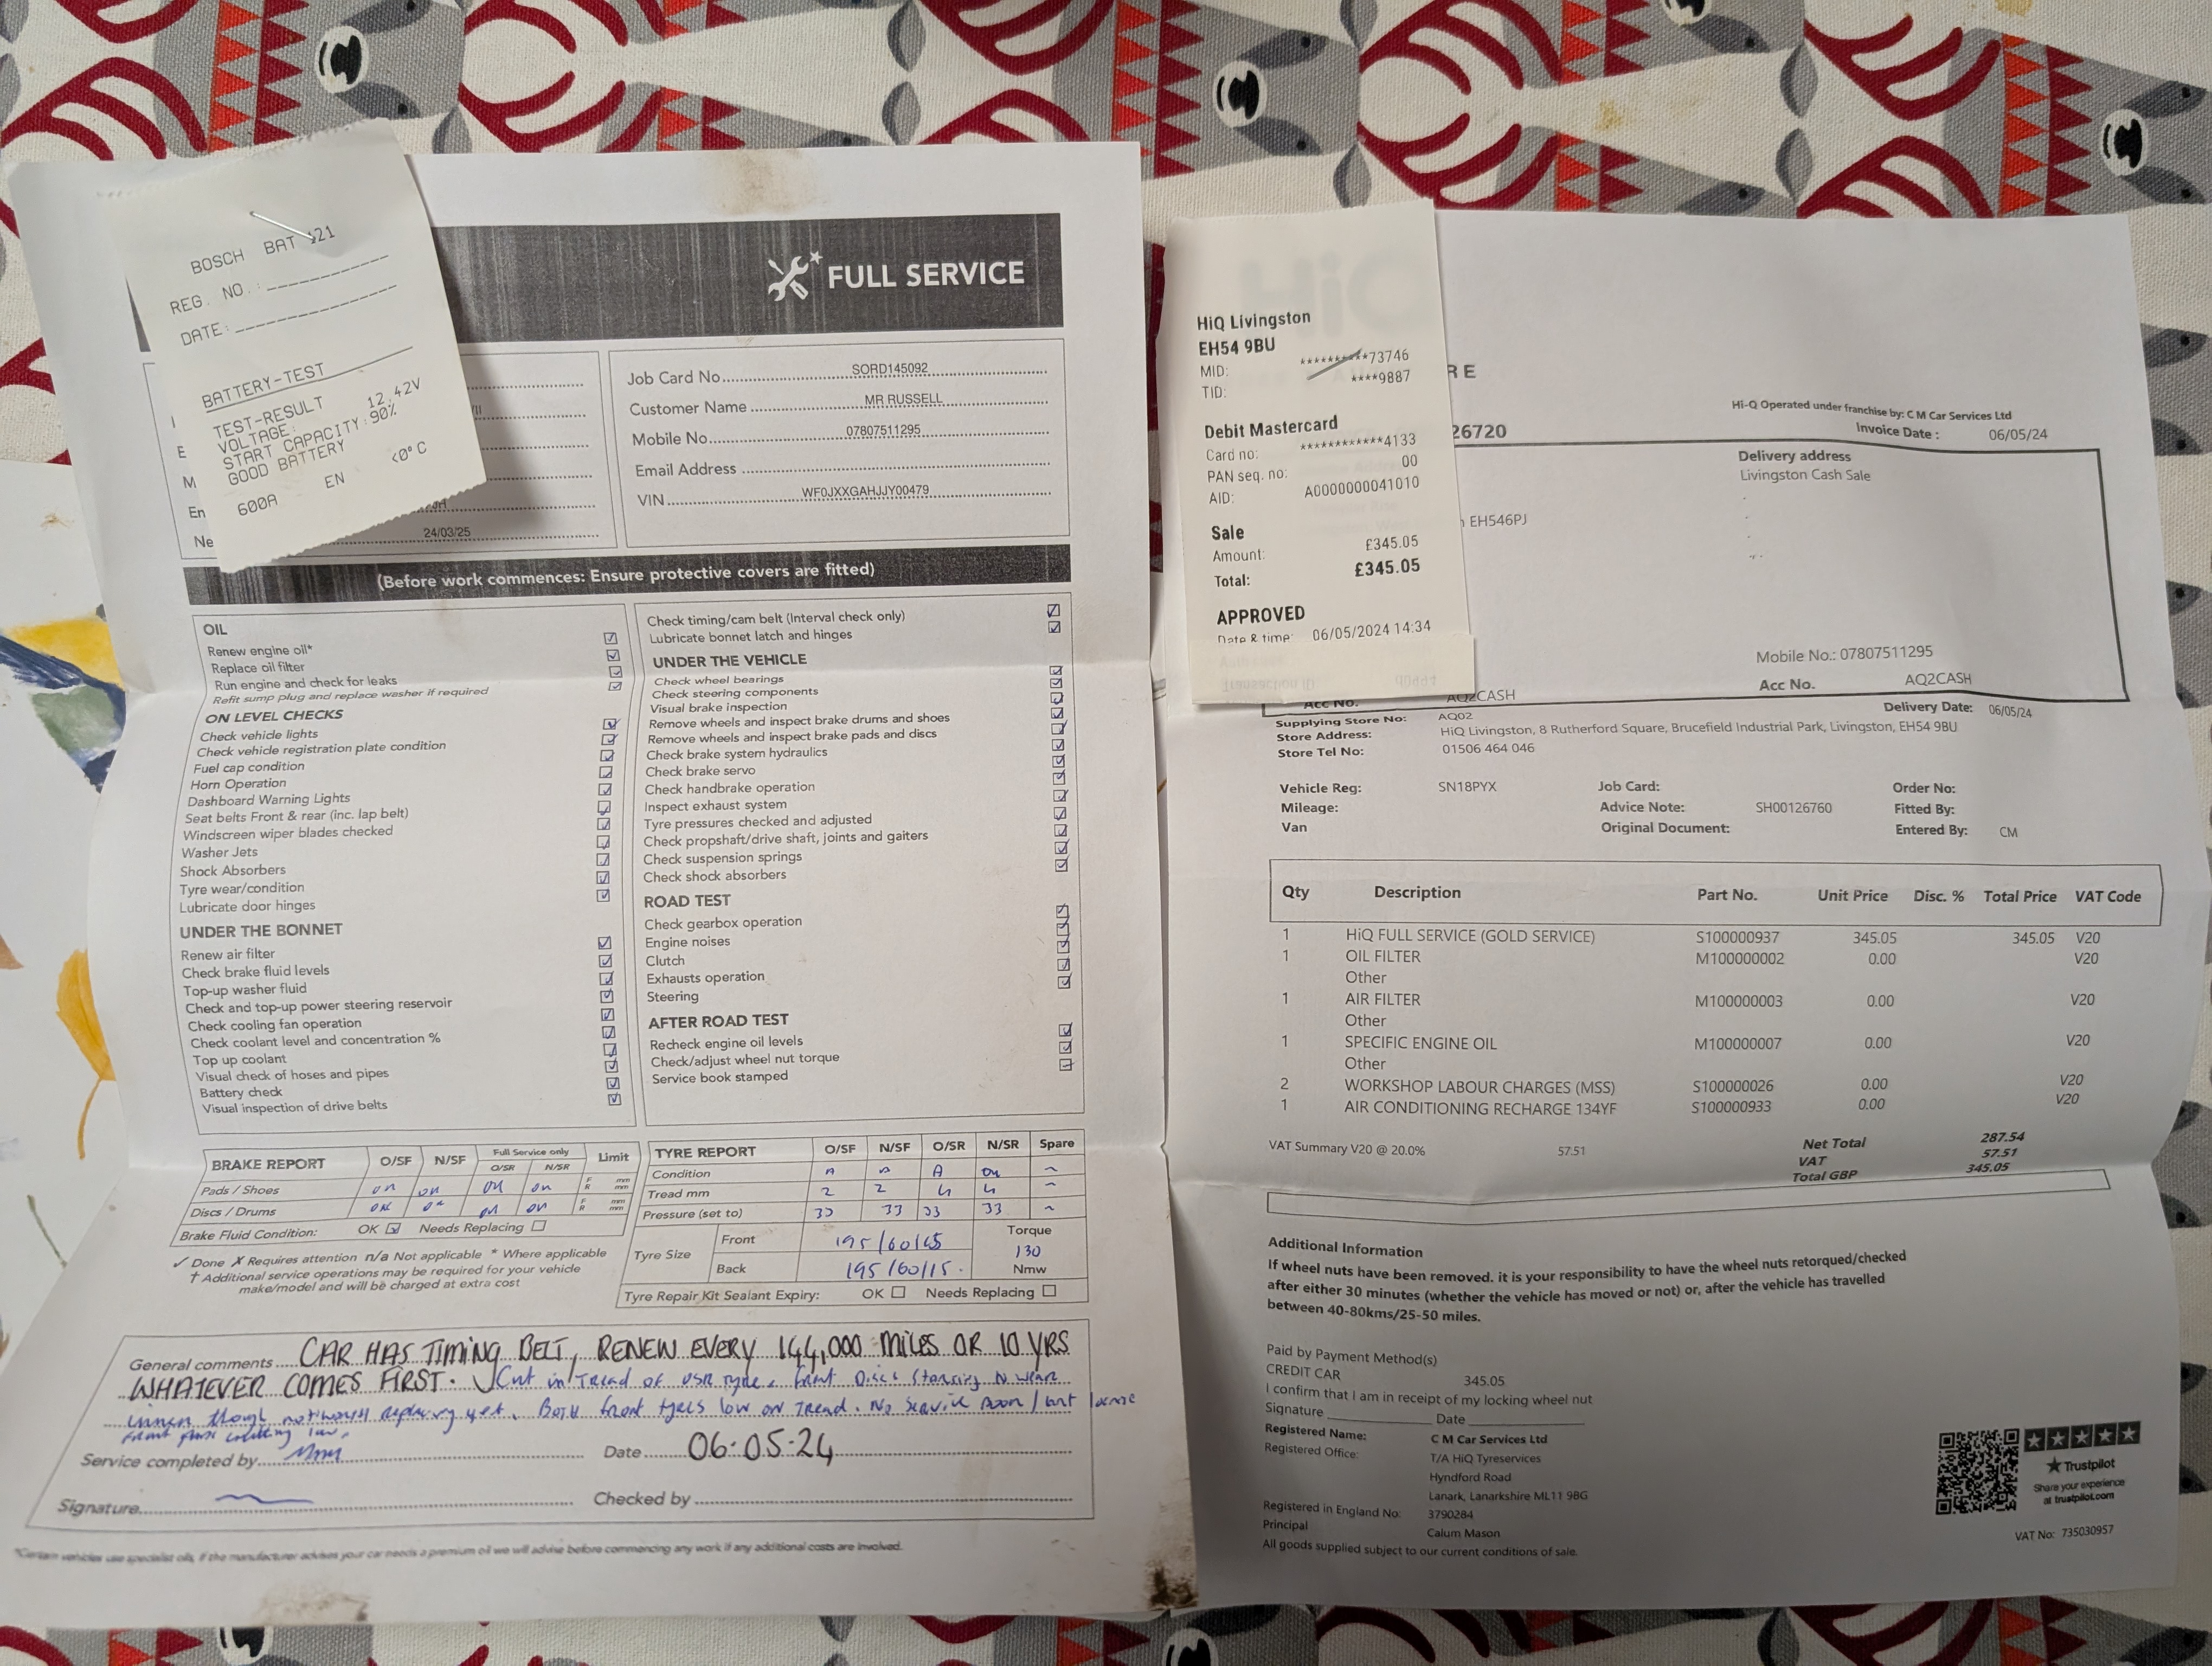 BOSCH BAT 121
REG. NO.:
DATE:
BATTERY-TEST
TEST-RESULT
VOLTAGE: 12,42V
START CAPACITY: 90%
GOOD BATTERY
600A EN <0°C
FULL SERVICE
E
M
En
Ne 24/03/25
Job Card No SORD145092
Customer Name MR RUSSELL
Mobile No 07807511295
Email Address
VIN WF0JXXGAHJJY00479
(Before work commences: Ensure protective covers are fitted)
OIL
Renew engine oil*
Replace oil filter
Run engine and check for leaks
Refit sump plug and replace washer if required
ON LEVEL CHECKS
Check vehicle lights
Check vehicle registration plate condition
Fuel cap condition
Horn Operation
Dashboard Warning Lights
Seat belts Front & rear (inc. lap belt)
Windscreen wiper blades checked
Washer Jets
Shock Absorbers
Tyre wear/condition
Lubricate door hinges
UNDER THE BONNET
Renew air filter
Check brake fluid levels
Top-up washer fluid
Check and top-up power steering reservoir
Check cooling fan operation
Check coolant level and concentration %
Top up coolant
Visual check of hoses and pipes
Battery check
Visual inspection of drive belts
Check timing/cam belt (Interval check only)
Lubricate bonnet latch and hinges
UNDER THE VEHICLE
Check wheel bearings
Check steering components
Visual brake inspection
Remove wheels and inspect brake drums and shoes
Remove wheels and inspect brake pads and discs
Check brake system hydraulics
Check brake servo
Check handbrake operation
Inspect exhaust system
Tyre pressures checked and adjusted
Check propshaft/drive shaft, joints and gaiters
Check suspension springs
Check shock absorbers
ROAD TEST
Check gearbox operation
Engine noises
Clutch
Exhausts operation
Steering
AFTER ROAD TEST
Recheck engine oil levels
Check/adjust wheel nut torque
Service book stamped
BRAKE REPORT O/SF N/SF Full Service only O/SR N/SR Limit
Pads / Shoes F mm R mm
Discs / Drums F mm R mm
Brake Fluid Condition: OK Needs Replacing
✓ Done ✗ Requires attention n/a Not applicable * Where applicable
† Additional service operations may be required for your vehicle
make/model and will be charged at extra cost
TYRE REPORT O/SF N/SF O/SR N/SR Spare
Condition A A A
Tread mm 2 2 4 4
Pressure (set to) 33 33 33 33
Tyre Size Front 195/60/15 Torque
130
Back 195/60/15. Nmw
Tyre Repair Kit Sealant Expiry: OK Needs Replacing
General comments CAR HAS TIMING BELT, RENEW EVERY 144,000 MILES OR 10 YRS
WHATEVER COMES FIRST. Cut in Tread of OSR Tyre. Front Discs Starting to wear
though not worth replacing yet. Both front tyres low on Tread. No Service
Service completed by
Date 06.05.24
Signature
Checked by
*Certain vehicles use specialist oils, if the manufacturer advises your car needs a premium oil we will advise before commencing any work if any additional costs are involved.
HiQ Livingston
EH54 9BU
MID: **********73746
TID: ****9887
Debit Mastercard
Card no: ************4133
PAN seq. no: 00
AID: A0000000041010
Sale
Amount: £345.05
Total: £345.05
APPROVED
Date & time: 06/05/2024 14:34
RE
Hi-Q Operated under franchise by: C M Car Services Ltd
26720
Invoice Date : 06/05/24
Delivery address
Livingston Cash Sale
EH546PJ
Mobile No.: 07807511295
Acc No. AQ2CASH
Acc No. AQ2CASH
Delivery Date: 06/05/24
Supplying Store No: AQ02
Store Address: HiQ Livingston, 8 Rutherford Square, Brucefield Industrial Park, Livingston, EH54 9BU
Store Tel No: 01506 464 046
Vehicle Reg: SN18PYX Job Card: Order No:
Mileage: Advice Note: SH00126760 Fitted By:
Van Original Document: Entered By: CM
Qty Description Part No. Unit Price Disc. % Total Price VAT Code
1 HiQ FULL SERVICE (GOLD SERVICE) S100000937 345.05 345.05 V20
1 OIL FILTER M100000002 0.00 V20
Other
1 AIR FILTER M100000003 0.00 V20
Other
1 SPECIFIC ENGINE OIL M100000007 0.00 V20
Other
2 WORKSHOP LABOUR CHARGES (MSS) S100000026 0.00 V20
1 AIR CONDITIONING RECHARGE 134YF S100000933 0.00 V20
VAT Summary V20 @ 20.0% 57.51
Net Total 287.54
VAT 57.51
Total GBP 345.05
Additional Information
If wheel nuts have been removed. it is your responsibility to have the wheel nuts retorqued/checked
after either 30 minutes (whether the vehicle has moved or not) or, after the vehicle has travelled
between 40-80kms/25-50 miles.
Paid by Payment Method(s)
CREDIT CAR 345.05
I confirm that I am in receipt of my locking wheel nut
Signature Date
Registered Name: C M Car Services Ltd
Registered Office: T/A HiQ Tyreservices
Hyndford Road
Lanark, Lanarkshire ML11 9BG
Registered in England No: 3790284
Principal Calum Mason
All goods supplied subject to our current conditions of sale.
Trustpilot
Share your experience
at trustpilot.com
VAT No: 735030957